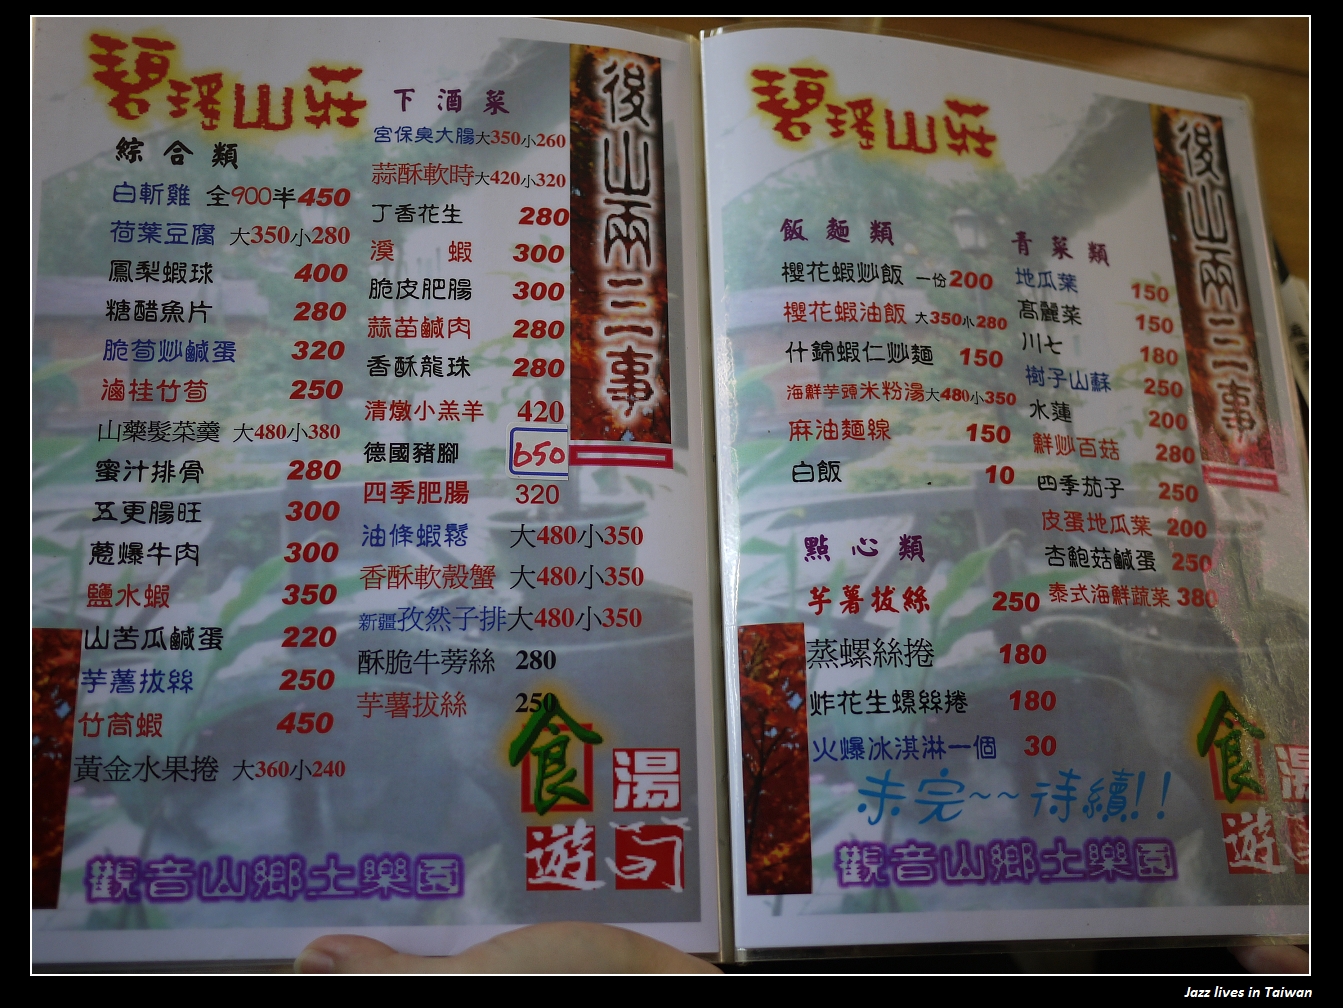 碧瑤山莊
綜合類
白斬雞 全900半450
荷葉豆腐 大350小280
鳳梨蝦球 400
糖醋魚片 280
脆荀炒鹹蛋 320
滷桂竹荀 250
山藥髮菜羹 大480小380
蜜汁排骨 280
五更腸旺 300
蔥爆牛肉 300
鹽水蝦 350
山苦瓜鹹蛋 220
芋薯拔絲 250
竹筒蝦 450
黃金水果捲 大360小240
下酒菜
宮保臭大腸大350小260
蒜酥軟時大420小320
丁香花生 280
溪蝦 300
脆皮肥腸 300
蒜苗鹹肉 280
香酥龍珠 280
清燉小羔羊 420
德國豬腳 650
四季肥腸 320
油條蝦鬆 大480小350
香酥軟殼蟹 大480小350
新疆孜然子排大480小350
酥脆牛蒡絲 280
芋薯拔絲 250
後山兩三事
食
湯
遊
觀音山鄉土樂園
碧瑤山莊
飯麵類
櫻花蝦炒飯 一份200
櫻花蝦油飯 大350小280
什錦蝦仁炒麵 150
海鮮芋頭米粉湯大480小350
麻油麵線 150
白飯 10
點心類
芋薯拔絲 250
蒸螺絲捲 180
炸花生螺絲捲 180
火爆冰淇淋一個 30
青菜類
地瓜葉 150
高麗菜 150
川七 180
樹子山蘇 250
水蓮 200
鮮炒百菇 280
四季茄子 250
皮蛋地瓜葉 200
杏鮑菇鹹蛋 250
泰式海鮮蔬菜 380
未完~~待續!!
後山兩三事
食
湯
遊
觀音山鄉土樂園
Jazz lives in Taiwan